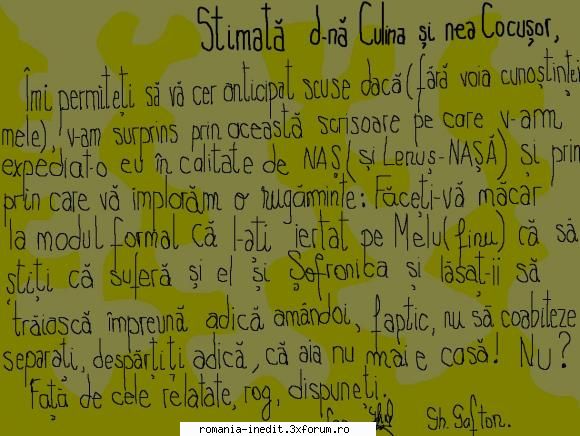 Stimată d-nă Culina și nea Cocușor,
Îmi permiteți să vă cer anticipat scuse dacă (fără voia cunoștinței
mele), v-am surprins prin această scrisoare pe care v-am
expediat-o eu în calitate de NAȘ (și Lenuș-NAȘĂ) și prin
prin care vă implorăm o rugăminte: Faceți-vă măcar
la modul formal că l-ați iertat pe Melu (finu) că să
știți că suferă și el și Șofronica și lăsaț-ii să
trăiască împreună adică amândoi, faptic, nu să coabiteze
separați, despărțiți adică, că aia nu mai e casă! Nu?
Față de cele relatate, rog, dispuneți.
Gh. Gafton.
romania-inedit.3xforum.ro